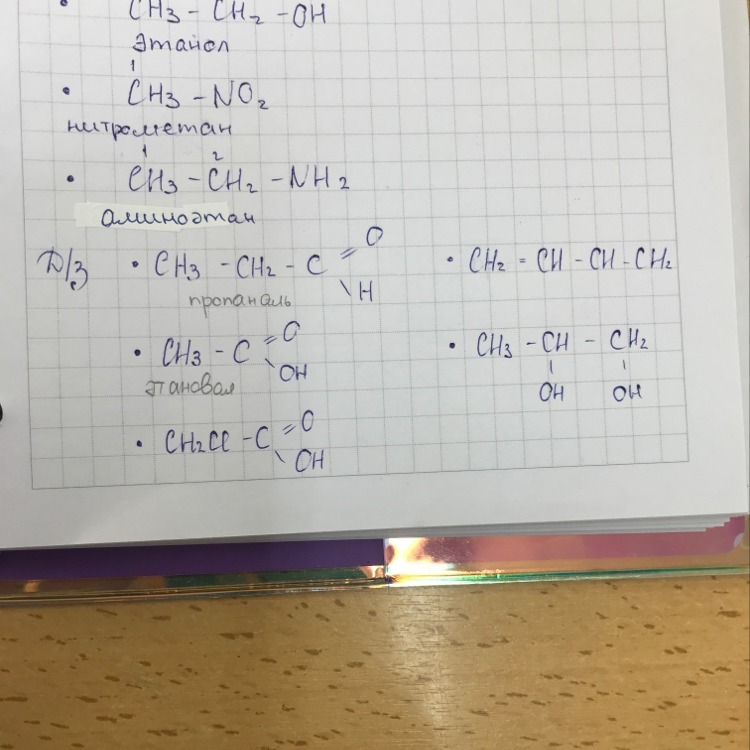 • CH3 - CH2 - OH
этанол
1
• CH3 - NO2
нитрометан
1 2
• CH3 - CH2 - NH2
аминоэтан
Д/з • CH3 - CH2 - C = O \ H
пропаналь
• CH3 - C = O \ OH
этановая
• CH2Cl - C = O \ OH
• CH2 = CH - CH - CH2
• CH3 - CH - CH2
OH OH